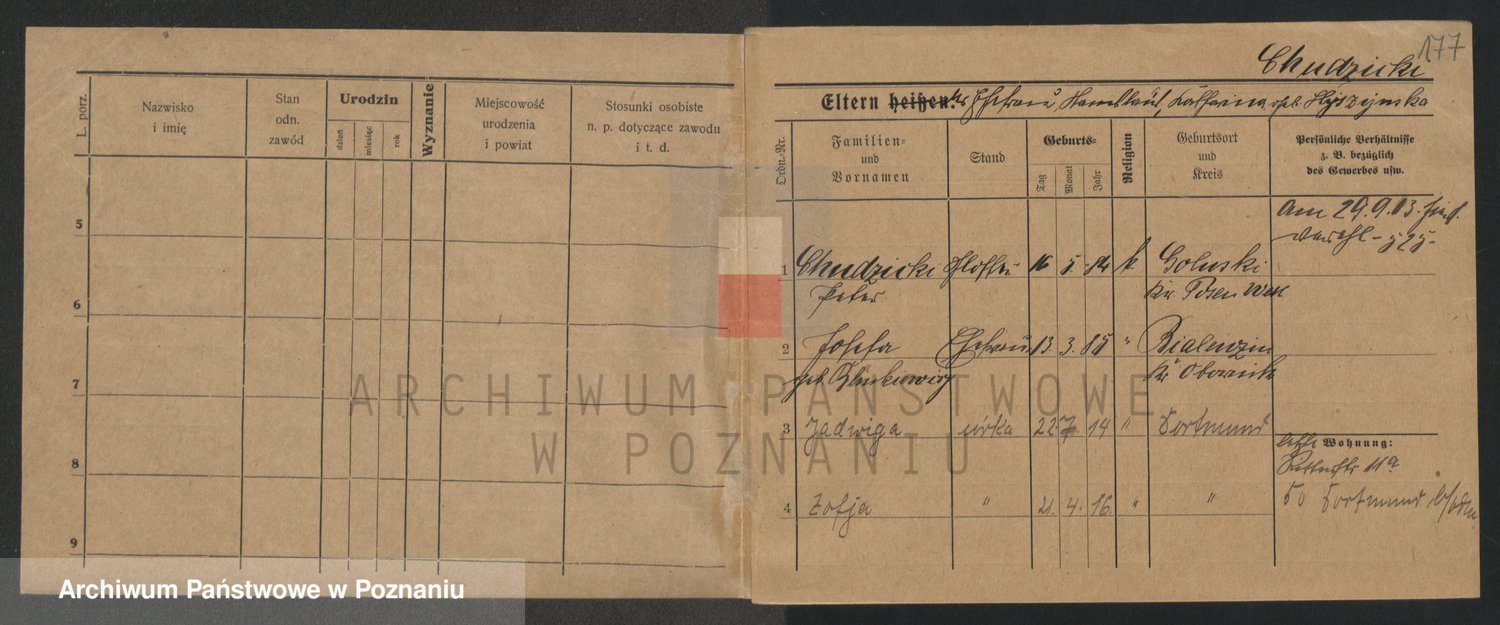 L. porz.
Nazwisko
i imię
Stan
odn.
zawód
Urodzin
dzień
miesiąc
rok
Wyznanie
Miejscowość
urodzenia
i powiat
Stosunki osobiste
n. p. dotyczące zawodu
i t. d.
5
6
7
8
9
177
Chudzicki
Eltern heißen:
Ordn.-Nr.
Familien-
und
Vornamen
Stand
Geburts-
Tag
Monat
Jahr
Religion
Geburtsort
und
Kreis
Persönliche Verhältnisse
z. B. bezüglich
des Gewerbes usw.
Am 29.9.13
1 Chudzicki 16 k Goluski
Peter Kr. Posen West
2 Josefa Ehefrau 13. 3. 85 " Bialenzin
geb. Kr. Obornik
3 Jadwiga córka 22 7 14 " Dortmund
4 Zofja " 21. 4. 16 " "
letzte Wohnung:
11a
Dortmund
ARCHIWUM PAŃSTWOWE
W POZNANIU
Archiwum Państwowe w Poznaniu